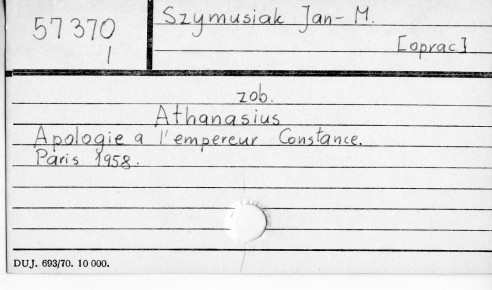 57370
I
Szymusiak Jan-M.
[oprac]
zob.
Athanasius
Apologie a l'empereur Constance.
Paris 1958.
DUJ. 693/70. 10 000.